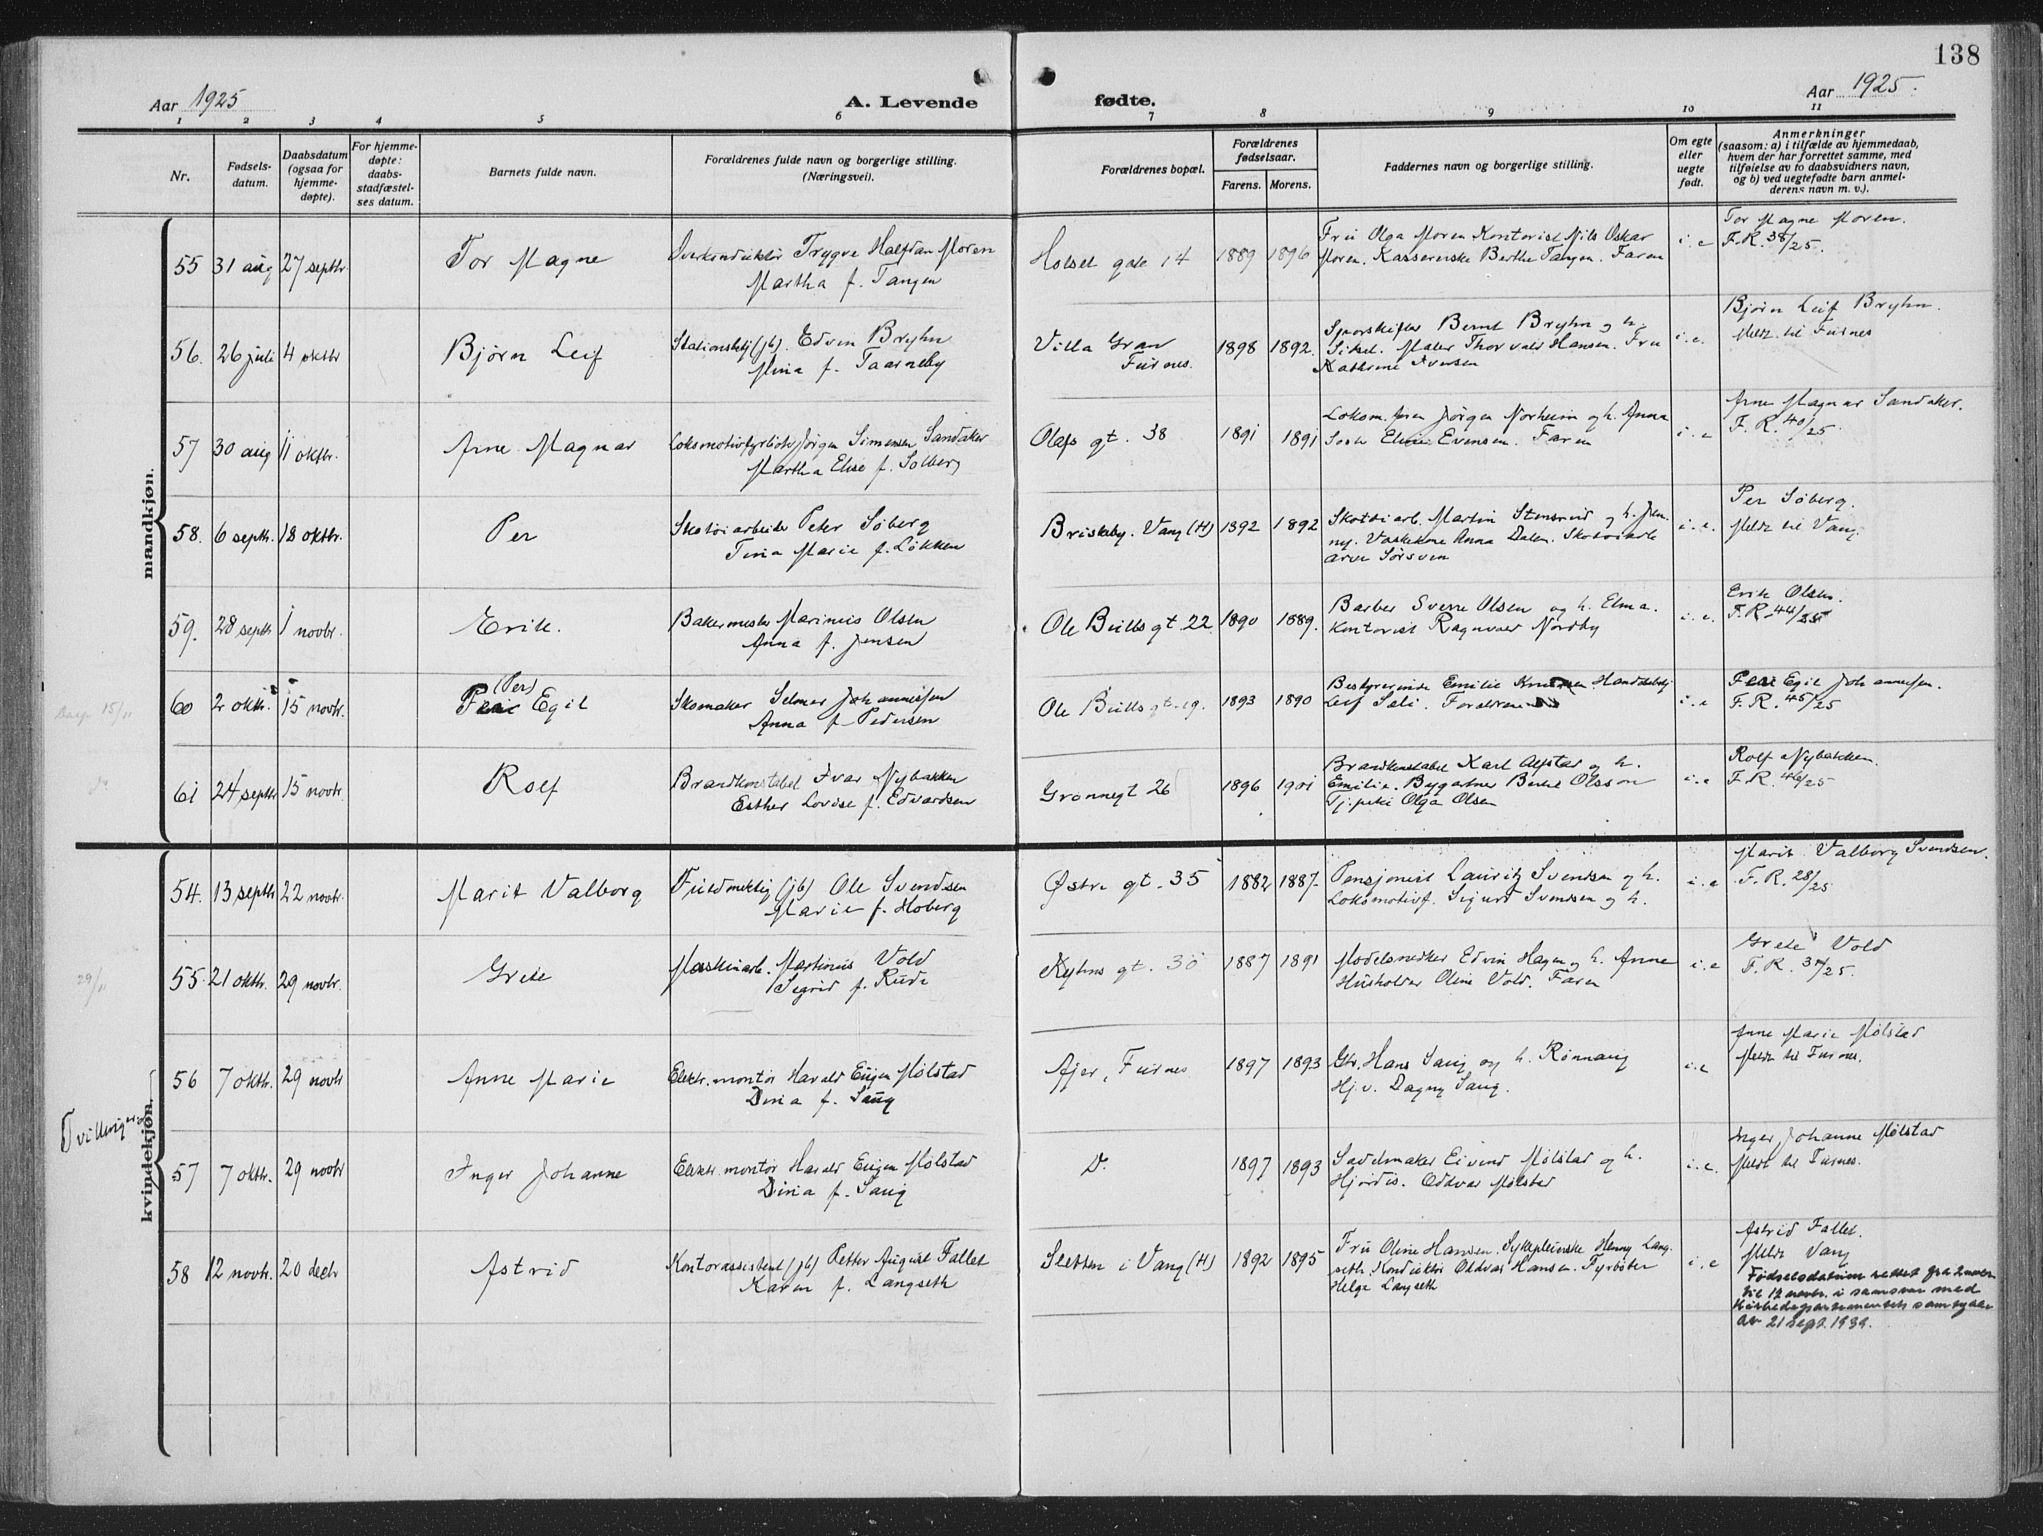 138
Aar 1925
A. Levende
fødte.
Aar 1925.
1 2 3 4 5 6 7 8 9 10 11
Nr.
Fødsels-
datum.
Daabsdatum
(ogsaa for
hjemme-
døpte).
For hjemme-
døpte:
daabs-
stadfæstel-
ses datum.
Barnets fulde navn.
Forældrenes fulde navn og borgerlige stilling.
(Næringsvei).
Forældrenes bopæl.
Forældrenes
fødselsaar.
Farens. Morens.
Faddernes navn og borgerlige stilling.
Om egte
eller
uegte
født.
Anmerkninger
(saasom: a) i tilfælde av hjemmedaab,
hvem der har forrettet samme, med
tilføielse av to daabsvidners navn,
og b) ved uegtefødte barn anmel-
derens navn m. v.).
mandkjøn.
55 31 aug 27 septbr. Tor Magne
Overkonduktør Trygve Halfdan Moren
Martha f. Tangen
Holset gate 14 1889 1896
Fru Olga Moren. Kontorist Nils Oskar
Moren. Kassererske Berthe Tangen. Faren
i.e
Tor Magne Moren.
F.R. 38/25.
56. 26 juli 4 oktbr Bjørn Leif
Stationsbetj (jb). Edvin Bryhn
Mina f. Taarneby
Villa Gran
Furnes.
1898 1892.
Sporskifter Bernt Bryhn og h.
Sikel. Maler Thorvald Hansen. Fru
Kathrine Iversen
i.e.
Bjørn Leif Bryhn.
Meldt til Furnes
57 30 aug 11 oktbr. Arne Magnar
Lokomotivfyrbøter Jørgen Simensen Sandaker
Martha Elise f. Solberg
Olafs gt. 38 1891 1891
Jørgen Norheim og h. Anna
Evensen. Faren
i.e
Arne Magnar Sandaker.
F.R. 40/25.
58. 6 septb. 18 oktbr. Per
Skotøiarbeider Peter Søberg
Tina Marie f. Løkken
Briskeby. Vang (H) 1892 1892
Skotøiarb. Martin Stensrud og h. Jen-
ny. Vaskekone Anna Dalen.
i.e.
Per Søberg.
Meldt til Vang.
59. 28 septb 1 novbr. Erik.
Bakermester Marinius Olsen
Anna f. Jensen
Ole Bulls gt 22 1890 1889.
Barber Sverre Olsen og h. Elma.
Kontorist Ragnvald Nordby
i.e.
Erik Olsen.
F.R. 44/25
Daap 15/11
60 2 oktbr. 15 novbr. (Per)
Per Egil
Skomaker Selmer Johannessen
Anna f. Pedersen
Ole Bulls gt. 19. 1893 1890
Bestyrerinde Emilie Handelsbetj
Leif Sæli. Forældrene
i.e
Per Egil Johannessen.
F.R. 45/25
61 24 septb 15 novbr. Rolf
Brandkonstabel Ivar Nybakken
Esther Lovise f. Edvardsen
Grønnegt 26 1896 1901
Brandkonstabel Karl Alfstad og h.
Emilie. Bygartner Bernt Olsson
Tj.pike Olga Olsen
i.e
Rolf Nybakken.
F.R. 46/25
kvindekjøn.
54. 13 septb 22 novbr. Marit Valborg
Fuldmektig (jb) Ole Svendsen
Marie f. Hoberg
Østre gt. 35 1882 1887.
Pensjonist Lauritz Svendsen og h.
Lokomotivf. Sigurd Svendsen og h.
i.e
Marit Valborg Svendsen.
F.R. 28/25
29/11
55. 21 oktbr. 29 novbr. Grete
Maskinarb. Martinus Vold
Sigrid f. Rude
Kyhns gt. 30 1887 1891
Modelsnedker Edvin Hagen og h. Anne
Husholder Oline Vold. Faren
i.e
Grete Vold
F.R. 37/25.
Tvillinger
56 7 oktbr. 29 novbr Anne Marie
Elektr. montør Harald Eugen Mølstad
Dina f. Saug
Ajer, Furnes 1897 1893
Gbr. Hans Saug og h. Rønnaug
Hj.v. Dagny Saug.
i.e
Anne Marie Mølstad
Meldt til Furnes.
57 7 oktbr. 29 novbr Inger Johanne
Elektr. montør Harald Eugen Mølstad
Dina f. Saug
D. 1897 1893
Sadelmaker Eivind Mølstad og h.
Hjørdis. Oddvar Mølstad
i.e.
Inger Johanne Mølstad
Meldt til Furnes.
58 12 novbr. 20 decbr Astrid
Kontorassistent (jb) Petter August Fallet
Karen f. Langseth
Sletten i Vang (H) 1892 1895
Fru Oline Hansen. Sykepleierske Henny Lang-
seth. Konduktør Oddvar Hansen. Fyrbøter
Helge Langseth
i.e
Astrid Fallet.
Meldt Vang
Fødselsdatum rettet fra 2 novbr.
til 12 novbr. i samsvar med
Kirkedepartementets samtykke
av 21 sept. 1939.